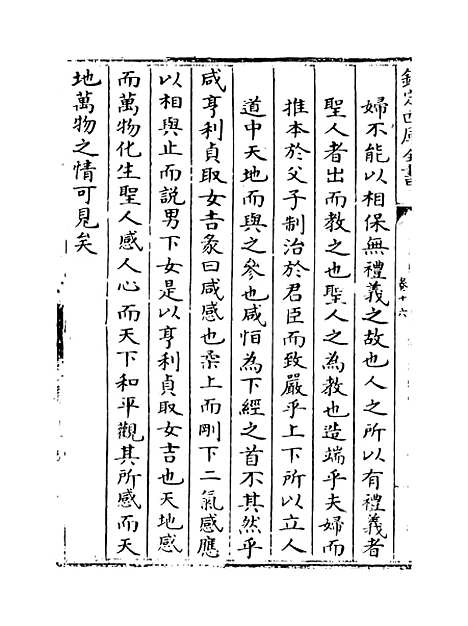 欽定四庫全書
卷十六
婦不能以相保無禮義之故也人之所以有禮義者
聖人者出而教之也聖人之為教也造端乎夫婦而
推本於父子制治於君臣而致嚴乎上下所以立人
道中天地而與之參也咸恒為下經之首不其然乎
咸亨利貞取女吉彖曰咸感也柔上而剛下二氣感應
以相與止而說男下女是以亨利貞取女吉也天地感
而萬物化生聖人感人心而天下和平觀其所感而天
地萬物之情可見矣